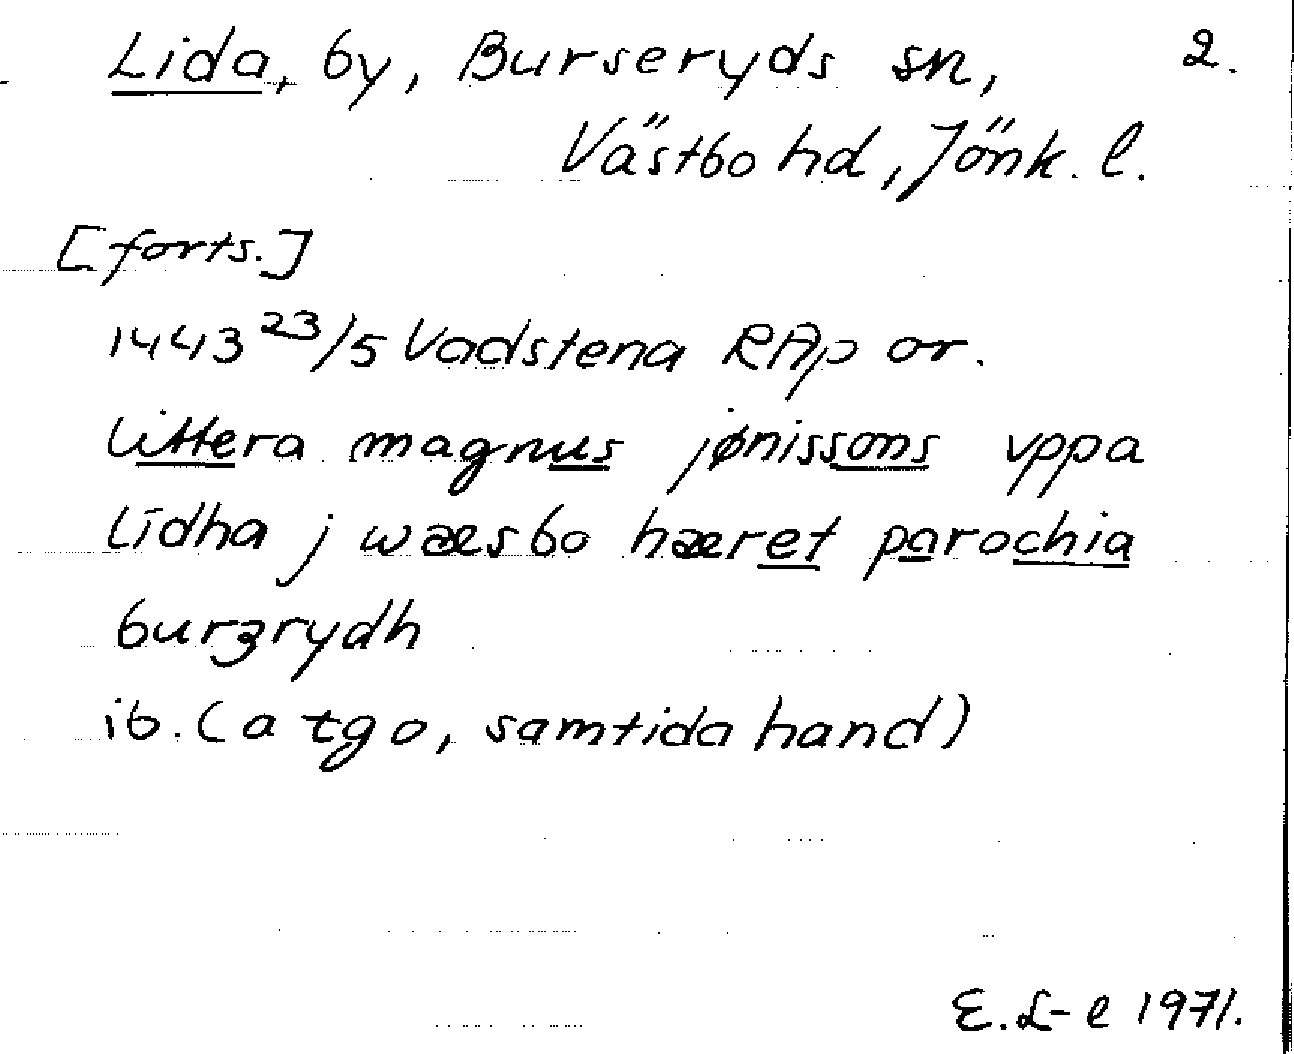 Lida, by, Burseryds sn, 2.
Västbo hd, Jönk. l.
[forts.]
1443 23/5 Vadstena RAp or.
littera magnus jønissons vppa
lidha j wæsbo hæret parochia
burzrydh
ib. (a tgo, samtida hand)
E. L-e 1971.